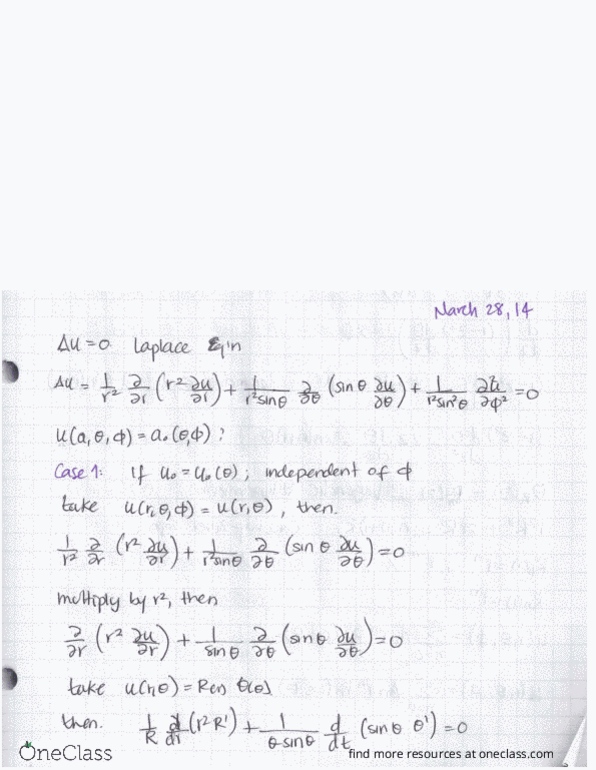 March 28, 14
Δu = 0 Laplace Eq'n
Δu = 1/r² ∂/∂r (r² ∂u/∂r) + 1/r²sinθ ∂/∂θ (sin θ ∂u/∂θ) + 1/r²sin²θ ∂²u/∂φ² = 0
u(a, θ, φ) = a₀(θ,φ) ?
Case 1: If u₀ = u₀(θ) ; independent of φ
take u(r,θ,φ) = u(r,θ) , then.
1/r² ∂/∂r (r² ∂u/∂r) + 1/r²sinθ ∂/∂θ (sin θ ∂u/∂θ) = 0
multiply by r², then
∂/∂r (r² ∂u/∂r) + 1/sinθ ∂/∂θ (sinθ ∂u/∂θ) = 0
take u(r,θ) = R(r) Θ(θ)
then. 1/R d/dr (r²R') + 1/Θ sinθ d/dt (sinθ Θ') = 0
OneClass
find more resources at oneclass.com